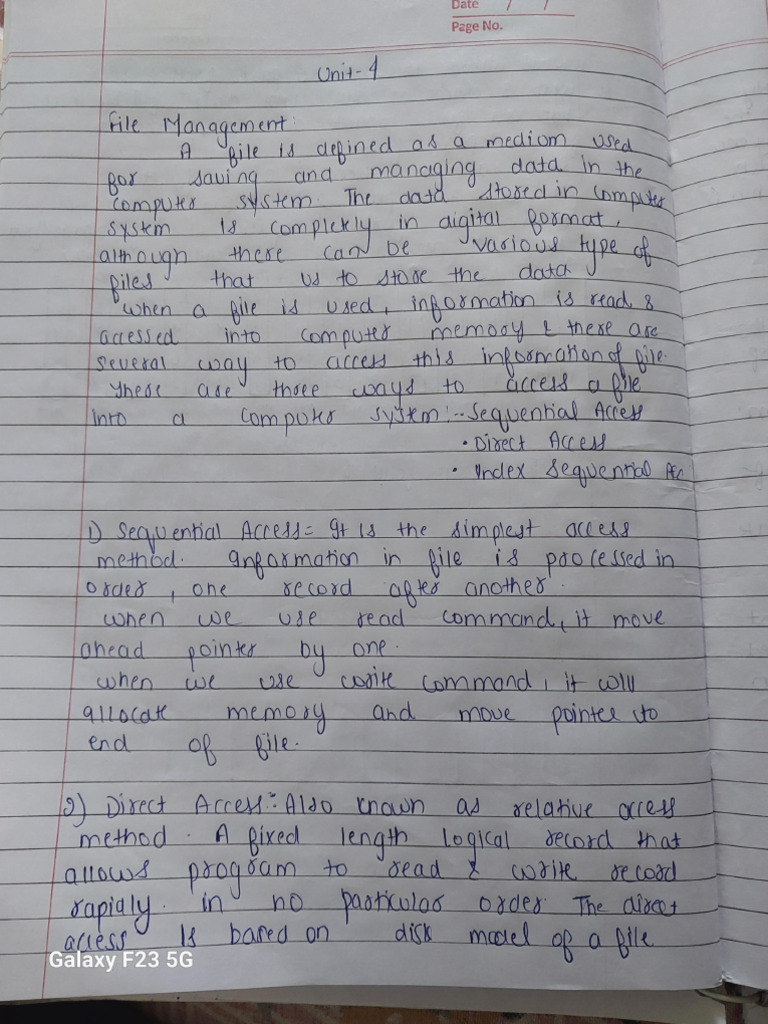 Date / /
Page No.
Unit-4
File Management:
A file is defined as a mediom used
for saving and managing data in the
computer system. The data stored in computer
system is completly in digital format,
although there can be various type of
files that us to store the data
when a file is used, information is read &
accessed into computer memory & there are
several way to access this information of file.
There are three ways to access a file
into a computer system:-- Sequential Access
• Direct Access
• Index Sequential Acc
1) Sequential Access= It is the simplest access
method. Information in file is processed in
order, one record after another.
when we use read command, it move
ahead pointer by one.
when we use write command, it will
allocate memory and move pointer to
end of file.
2) Direct Access:- Also known as relative access
method. A fixed length logical record that
allows program to read & write record
rapialy. in no particular order. The direct
access is based on disk model of a file
Galaxy F23 5G